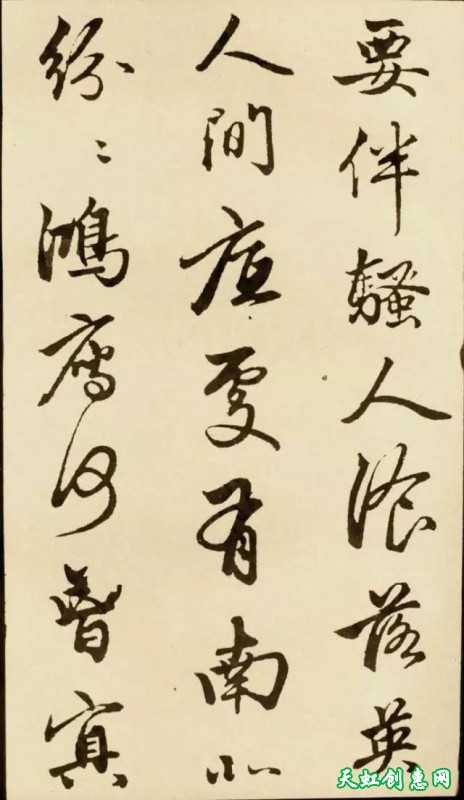 要伴騷人湌落英
人間底處有南北
紛〻鴻雁何曾冥
天虹创惠网